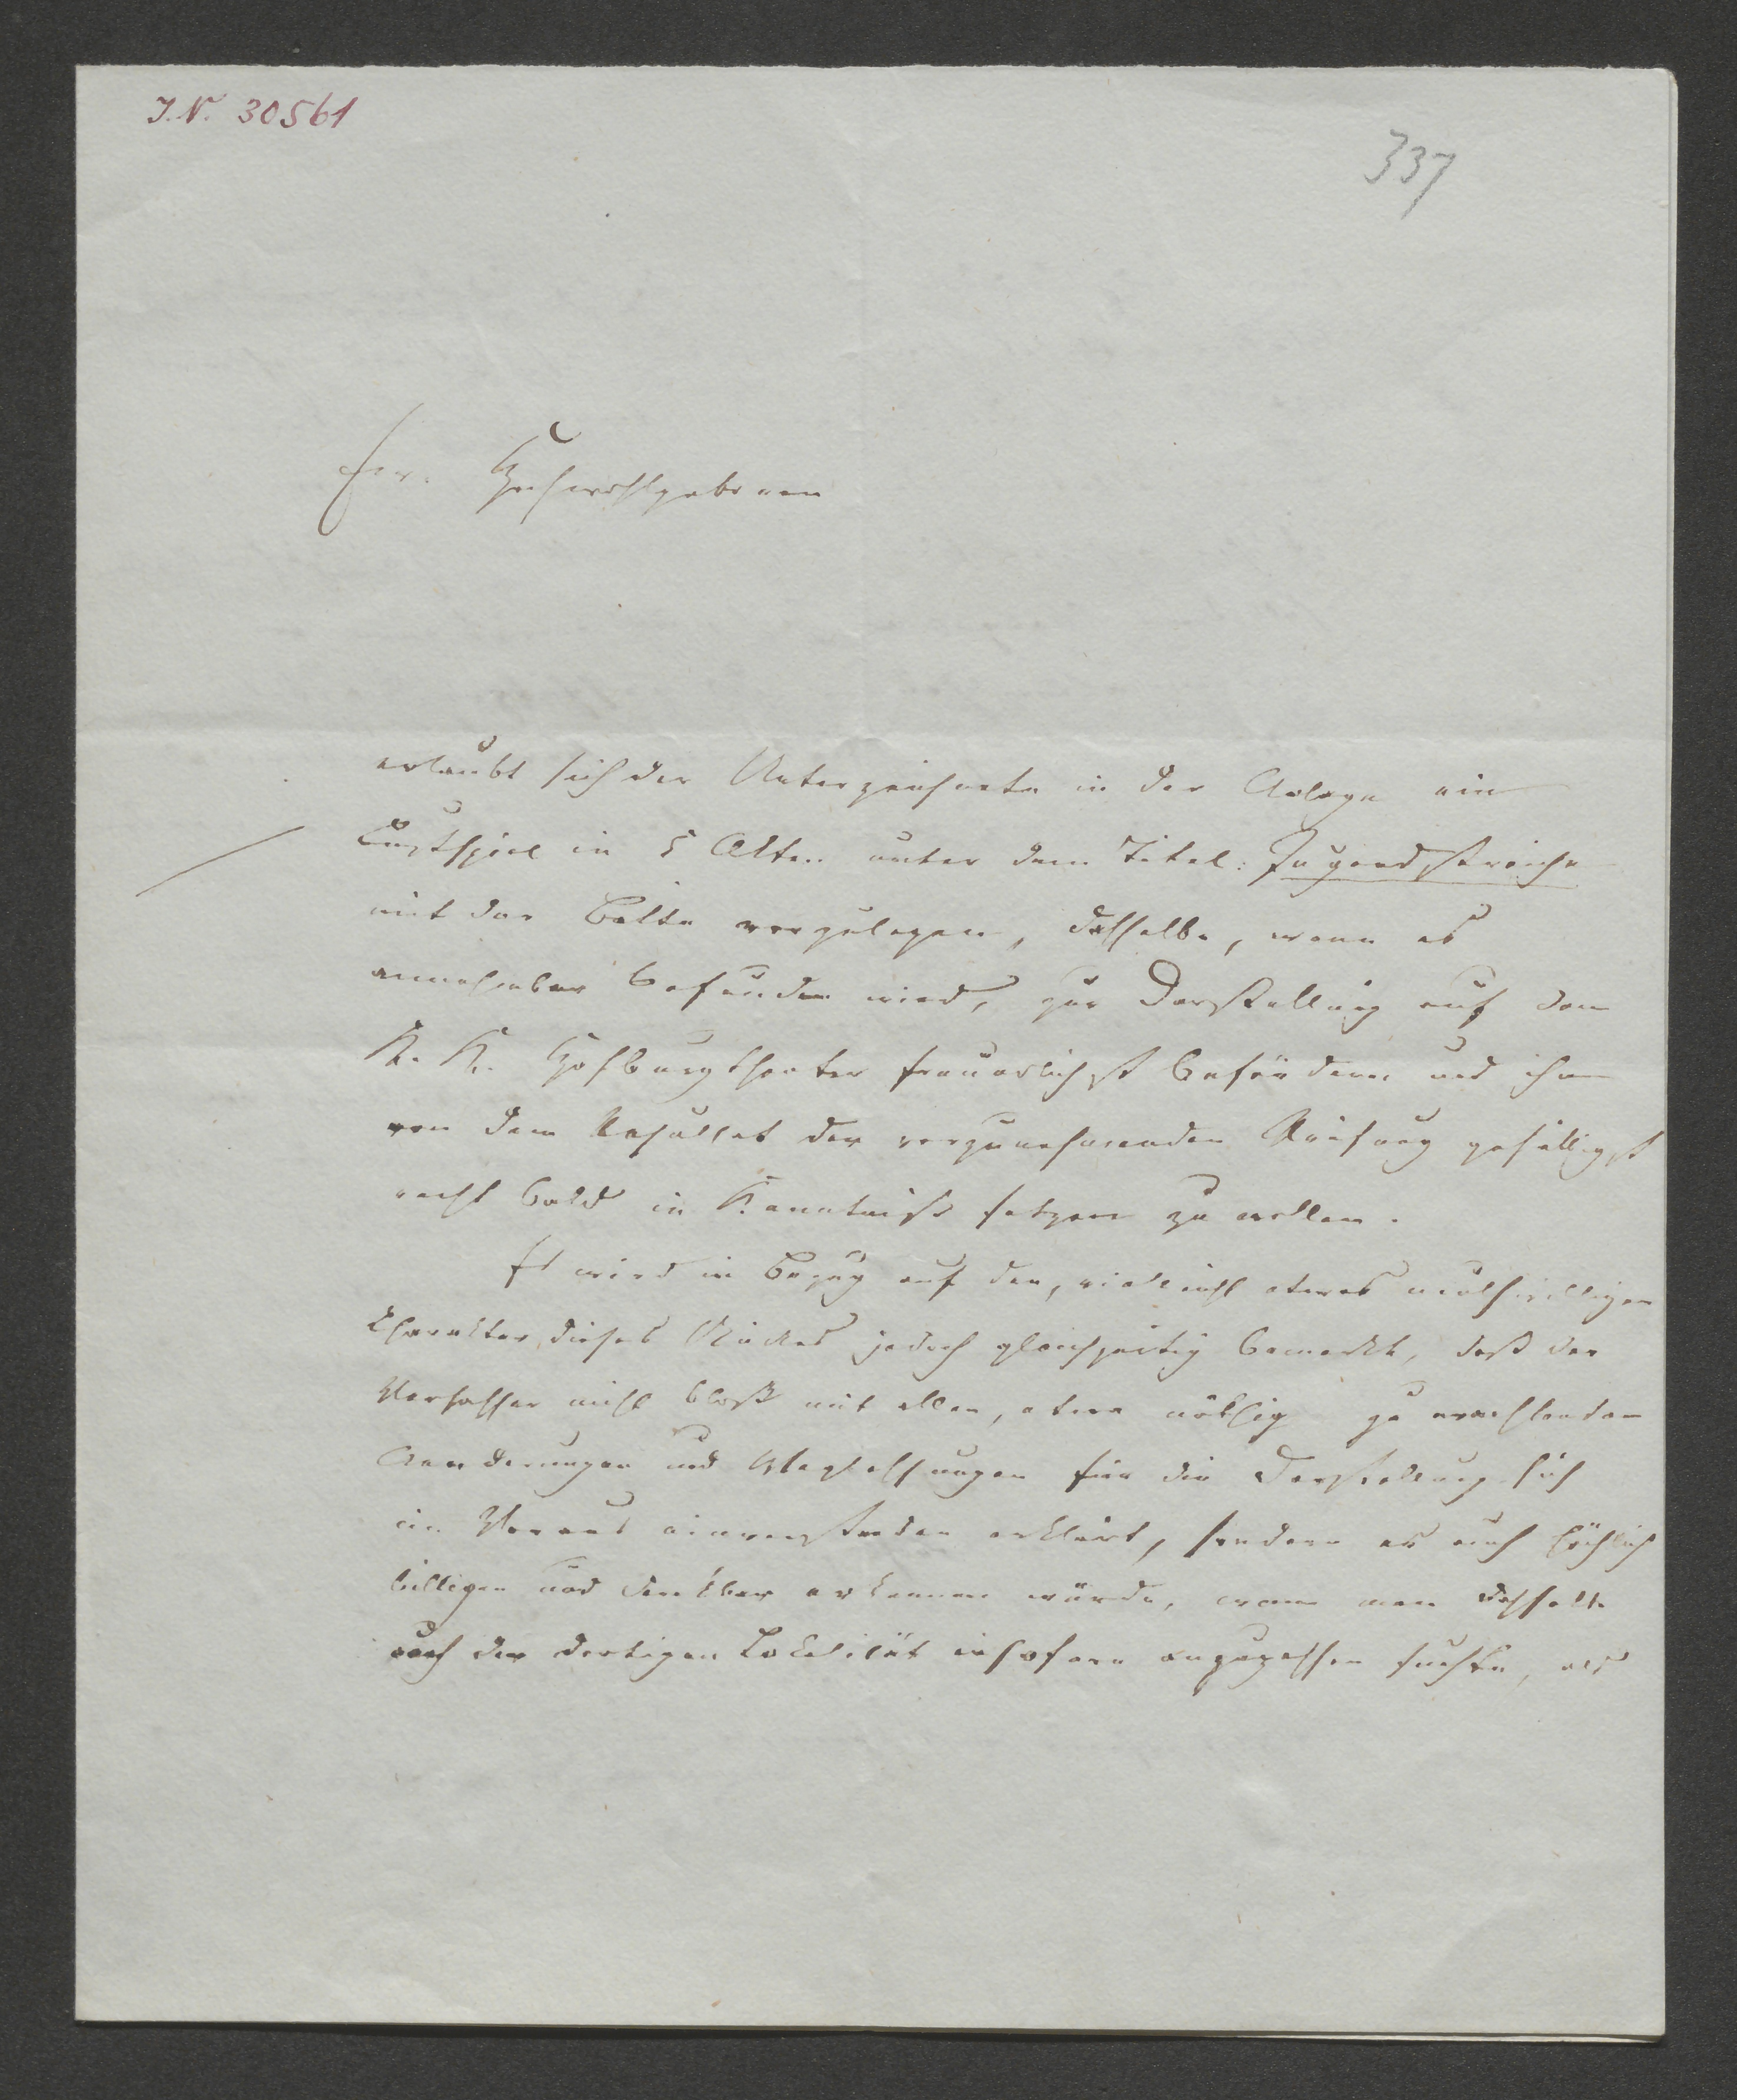 J. N. 30561
337
Ew. Hochwohlgeboren
erlaubt sich der Unterzeichnete in der Anlage ein
Lustspiel in 5 Akten unter dem Titel: Jugendstreiche
mit der Bitte vorzulegen, dasselbe, wenn es
annehmbar befunden wird, zur Darstellung auf dem
K. K. Hofburgtheater freundlichst befördern und ihn
von dem Resultat der vorzunehmenden Prüfung gefälligst
recht bald in Kenntniß setzen zu wollen.
Es wird in Bezug auf den, vielleicht etwas muthwilligen
Charakter dieses Stückes jedoch gleichzeitig bemerkt, daß der
Verfasser nicht bloß mit allen, etwa nöthig zu erachtenden
Aenderungen und Weglassungen für die Darstellung sich
im Voraus einverstanden erklärt, sondern es auch höchlich
billigen und dankbar erkennen würde, wenn man dasselbe
auch der dortigen Lokalität insofern anzupassen suchte, als